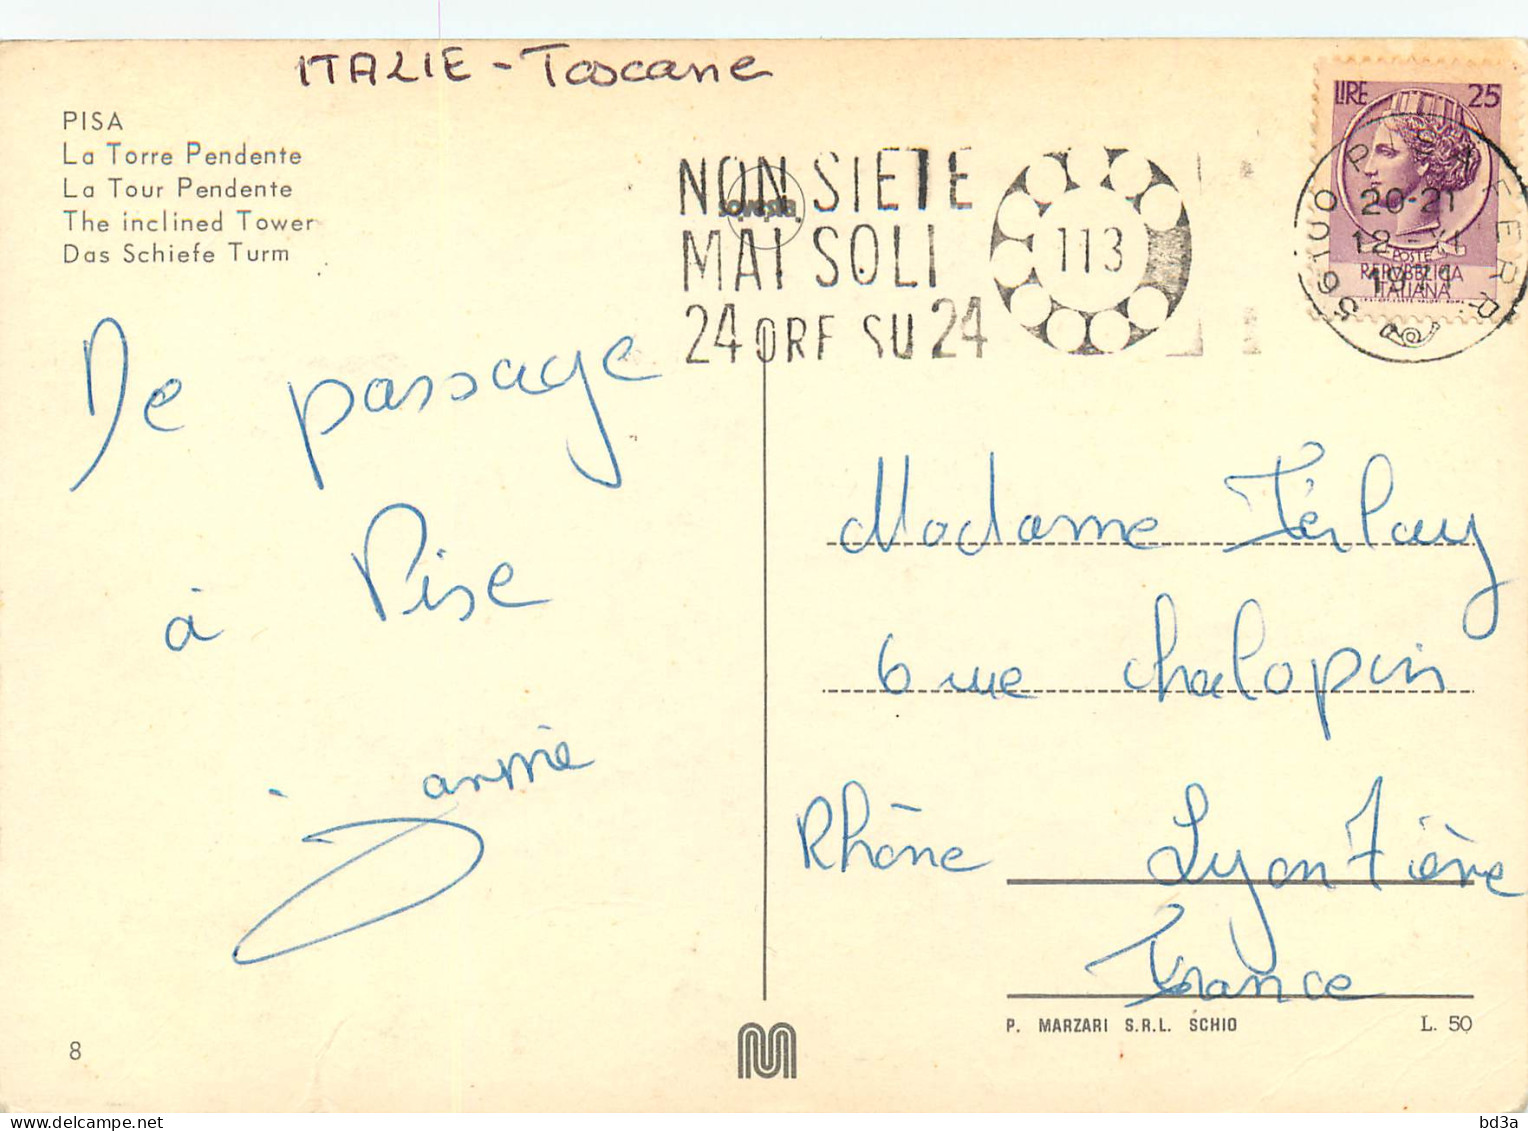 ITALIE - Toscane
PISA
La Torre Pendente
La Tour Pendente
The inclined Tower
Das Schiefe Turm
NON SIETE
MAI SOLI
24 ORE SU 24
113
sovesta
LIRE 25
POSTE
REPVBBLICA
ITALIANA
56100 PISA FERR
20-21
12
1971
De passage
à Pise
Jannie
Madame Férlay
6 rue Chalopin
Rhône Lyon 7ième
France
P. MARZARI S.R.L. SCHIO
L. 50
8
bd3a